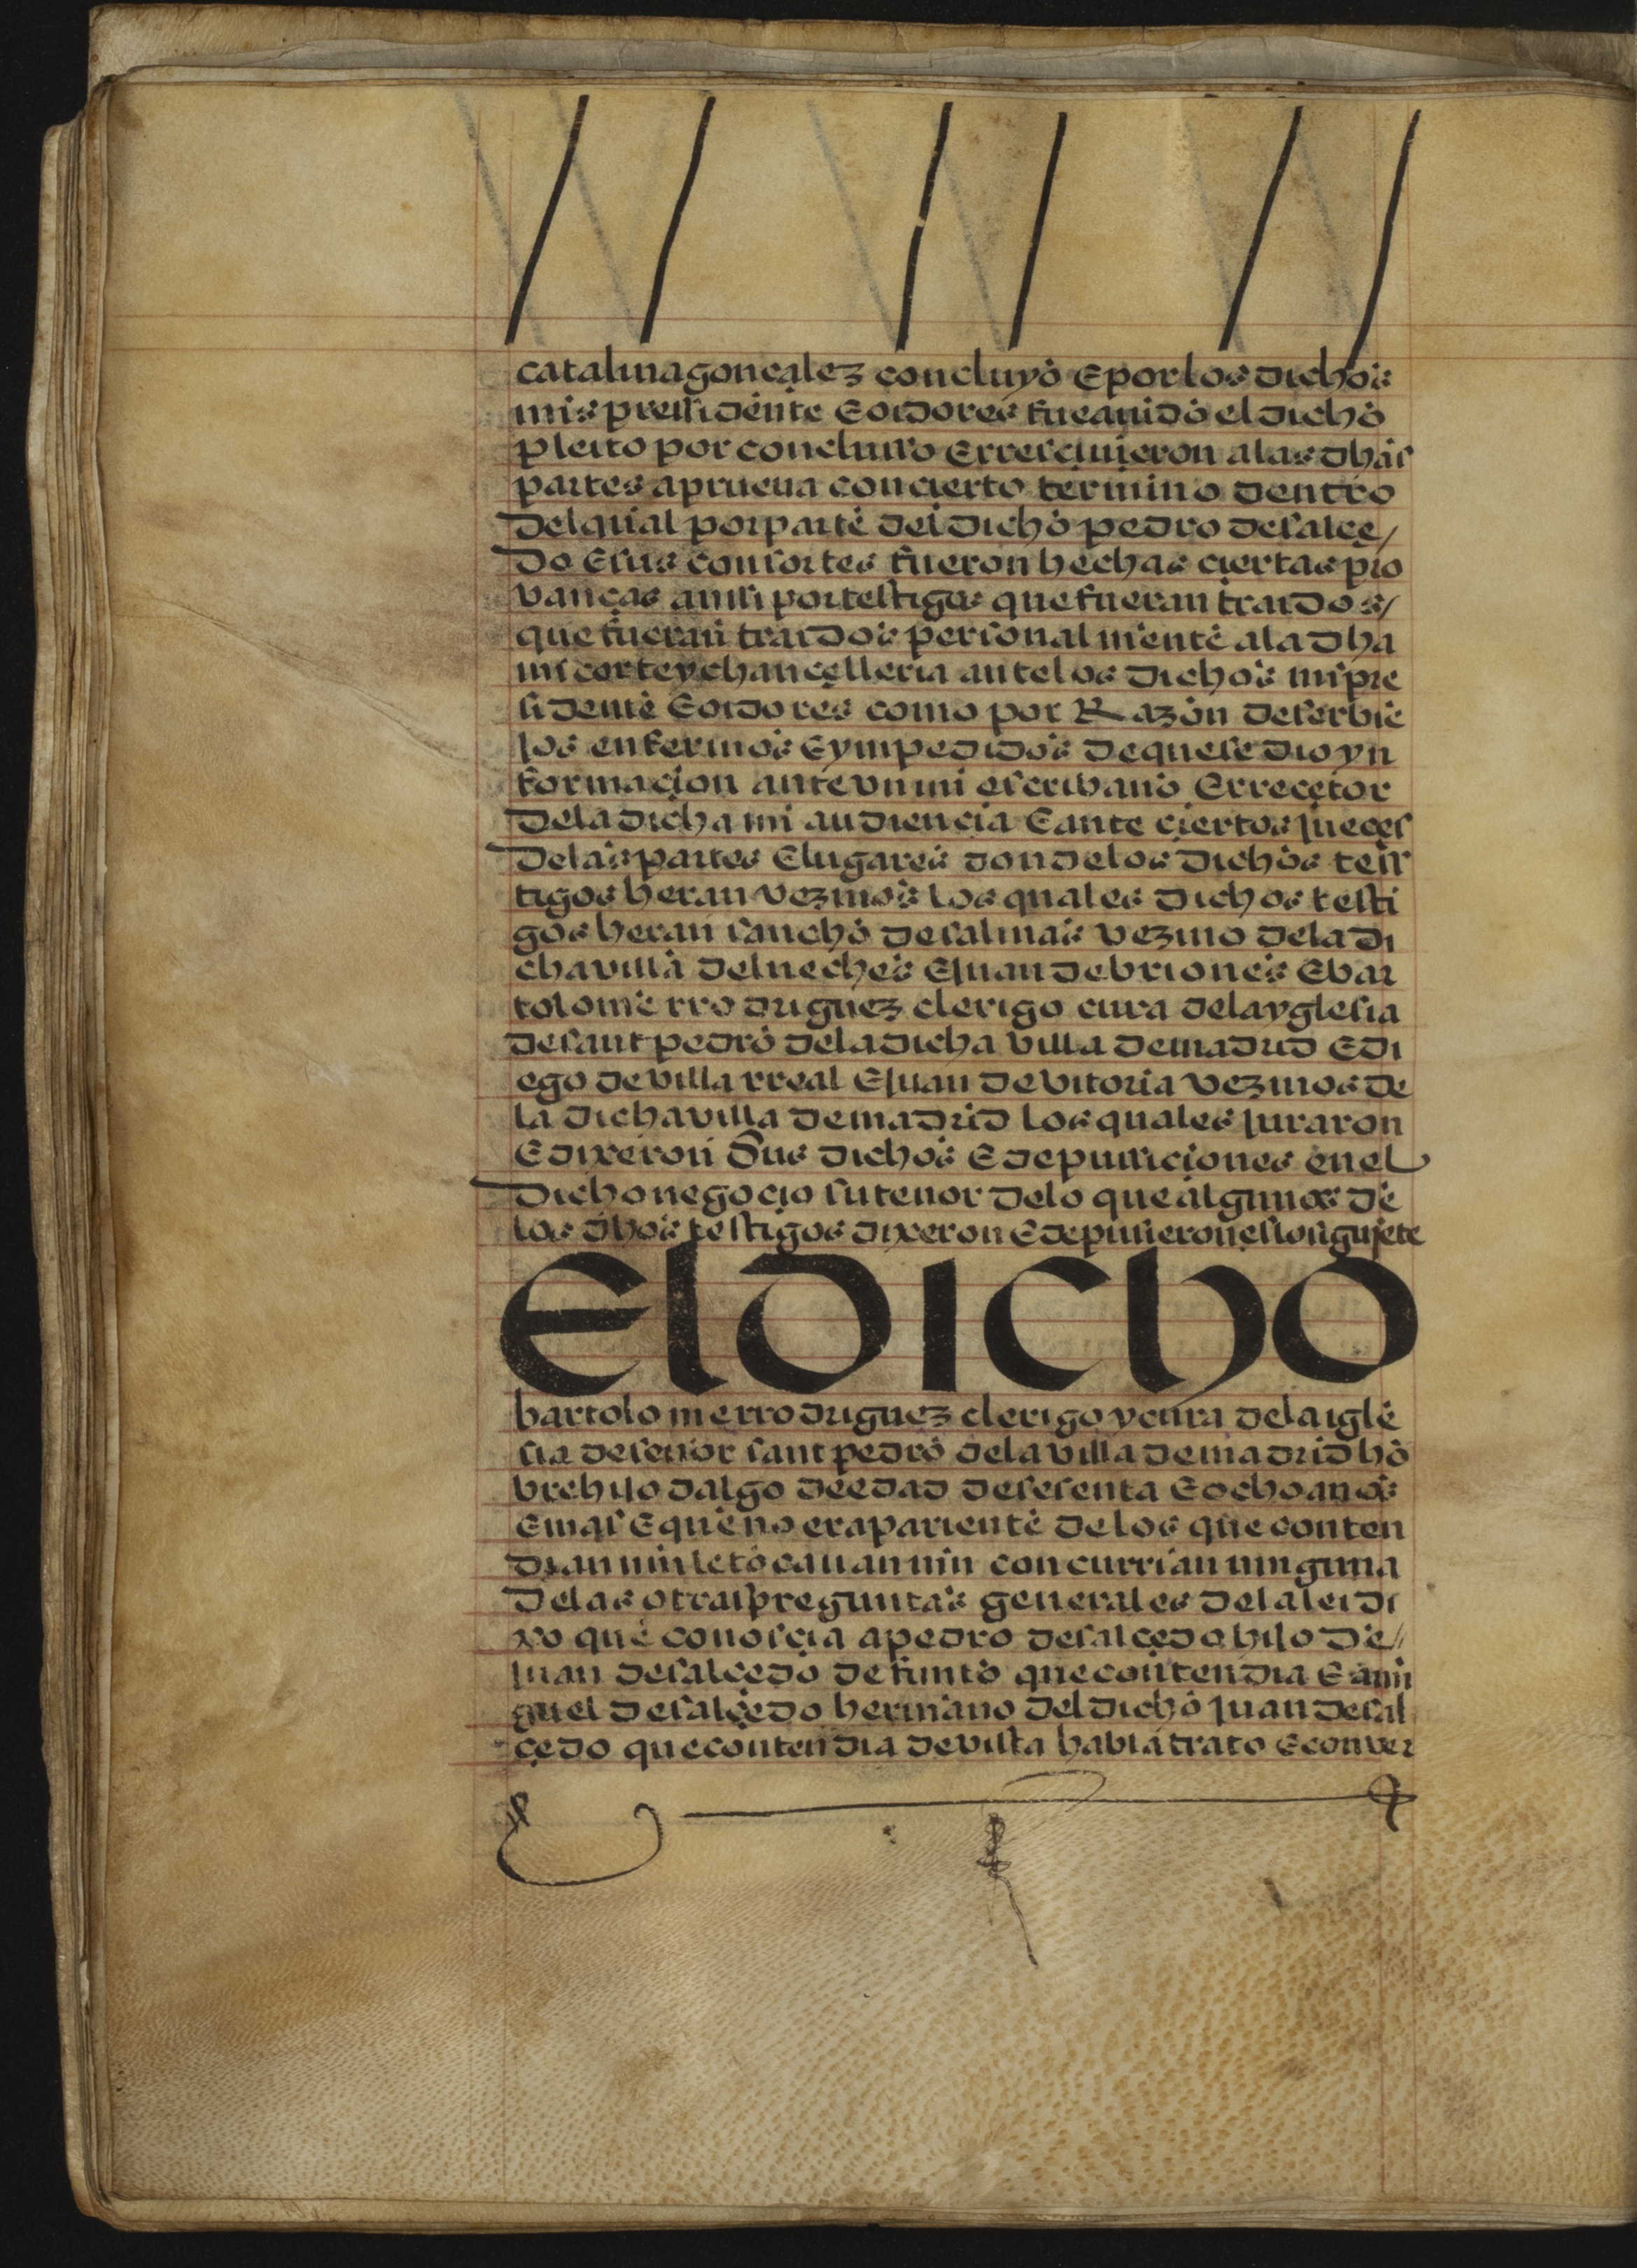 catalina gonçalez concluyo E por los dichos
mis pressidente E oidores fue auido el dicho
pleito por concluso E rrescivieron a las dhas
partes a prueua con cierto termino dentro
del qual por parte del dicho pedro de salçe/
do E sus consortes fueron hechas ciertas pro
vanças ansi por testigos que fueran traidos/
que fueran traidos personalmente a la dha
mi corte y chancelleria ante los dichos mi pre
sidente E oidores como por Razon de ser vie
jos enfermos E ympedidos de que se dio yn
formaçion ante vn mi escribano E rreçetor
de la dicha mi audiençia E ante çiertos jueçes
de las partes E lugares donde los dichos tes
tigos heran vezinos los quales dichos testi
gos heran sancho de salinas vezino de la di
cha villa del neches E juan de briones E bar
tolome rrodriguez clerigo cura de la yglesia
de sant pedro de la dicha villa de madrid E di
ego de villa rreal E juan de vitoria vezinos de
la dicha villa de madrid los quales juraron
E dixeron sus dichos E depusiciones en el
dicho negocio su tenor de lo que algunos de
los dhos testigos dixeron E depusieron es lo siguiete
El dicho
bartolome rrodriguez clerigo y cura de la igle
sia de señor sant pedro de la villa de madrid ho
bre hijo dalgo de edad de sesenta E ocho anos
E mas E que no era pariente de los que conten
dian nin le tocauan nin concurrian ninguna
de las otras preguntas generales de la lei di
xo que conoscia a pedro de salçedo hijo de//
juan de salçedo defunto que contendia E a mi
guel de salçedo hermano del dicho juan de sal
çedo que contendia de vista habla trato E conver